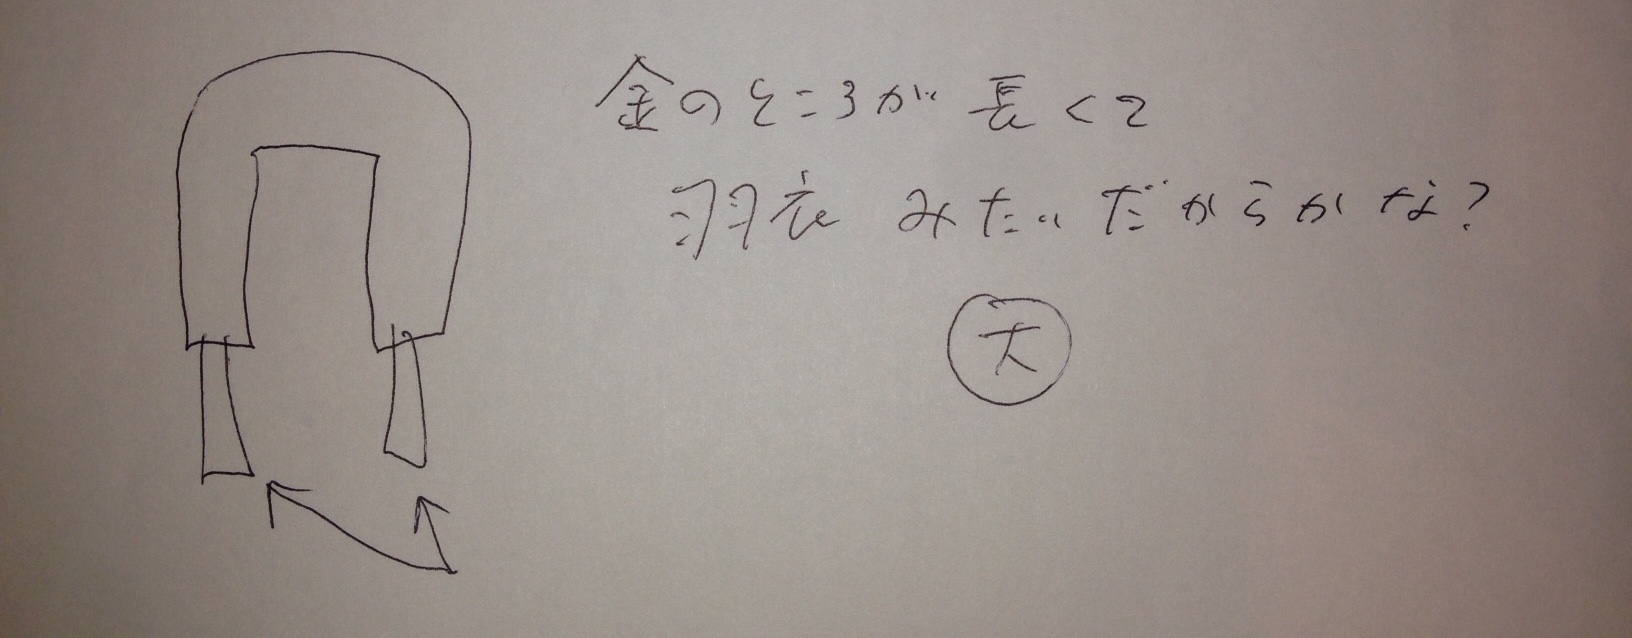 金のところが長くて
羽衣みたいだからかな?
大